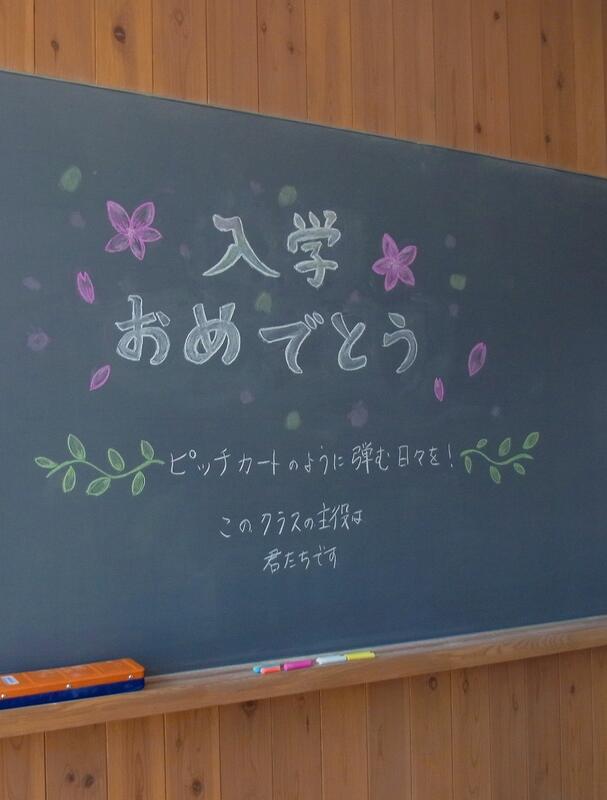 入学
おめでとう
ピッチカートのように弾む日々を！
このクラスの主役は
君たちです